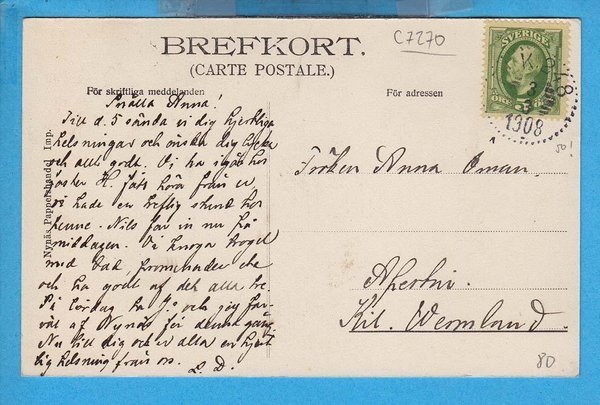 BREFKORT.
(CARTE POSTALE.)
C7270
För skriftliga meddelanden
För adressen
SVERIGE
5 ÖRE
1908
Snälla Anna!
Till d. 5 sända vi dig hjertliga
helsningar och önska dig lycka
och allt godt. Vi ha igår hos
H. fått höra från er
vi hade en treflig stund hos
henne. Nils far in nu på
middagen. Vi
med bad, promenader etc
och ha godt af det alla tre
På lördag ha J. och jag far-
väl af Nynäs för denna gång
Nu till dig och er alla en hjert-
lig helsning från oss.
L. D.
Nynäs Pappershandel Imp.
Fröken Anna Öman.
Kil. Wermland.
50!
80